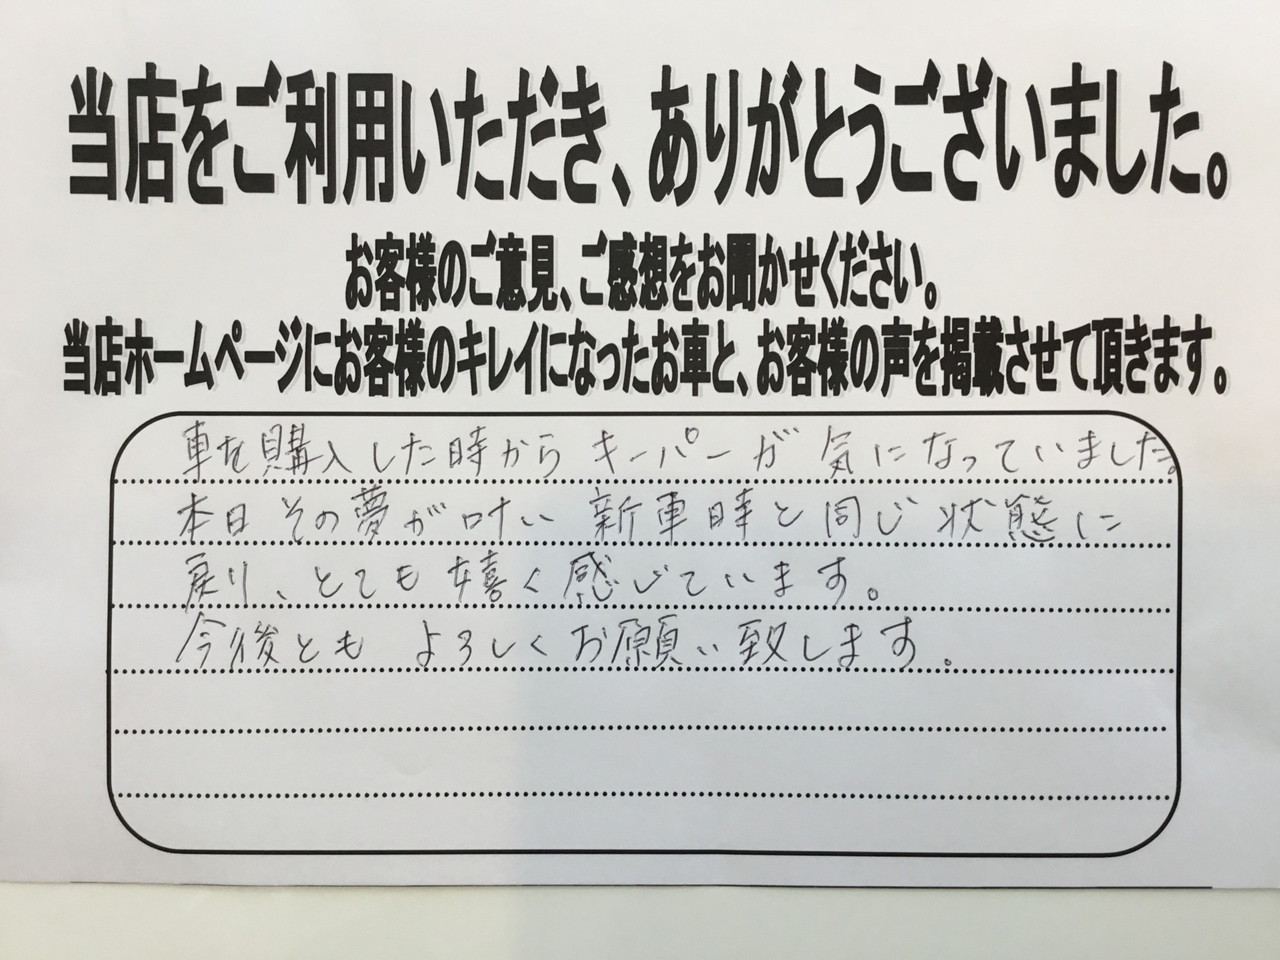 当店をご利用いただき、ありがとうございました。
お客様のご意見、ご感想をお聞かせください。
当店ホームページにお客様のキレイになったお車と、お客様の声を掲載させて頂きます。
車を購入した時からキーパーが気になっていました。
本日その夢が叶い新車時と同じ状態に
戻り、とても嬉く感じています。
今後ともよろしくお願い致します。